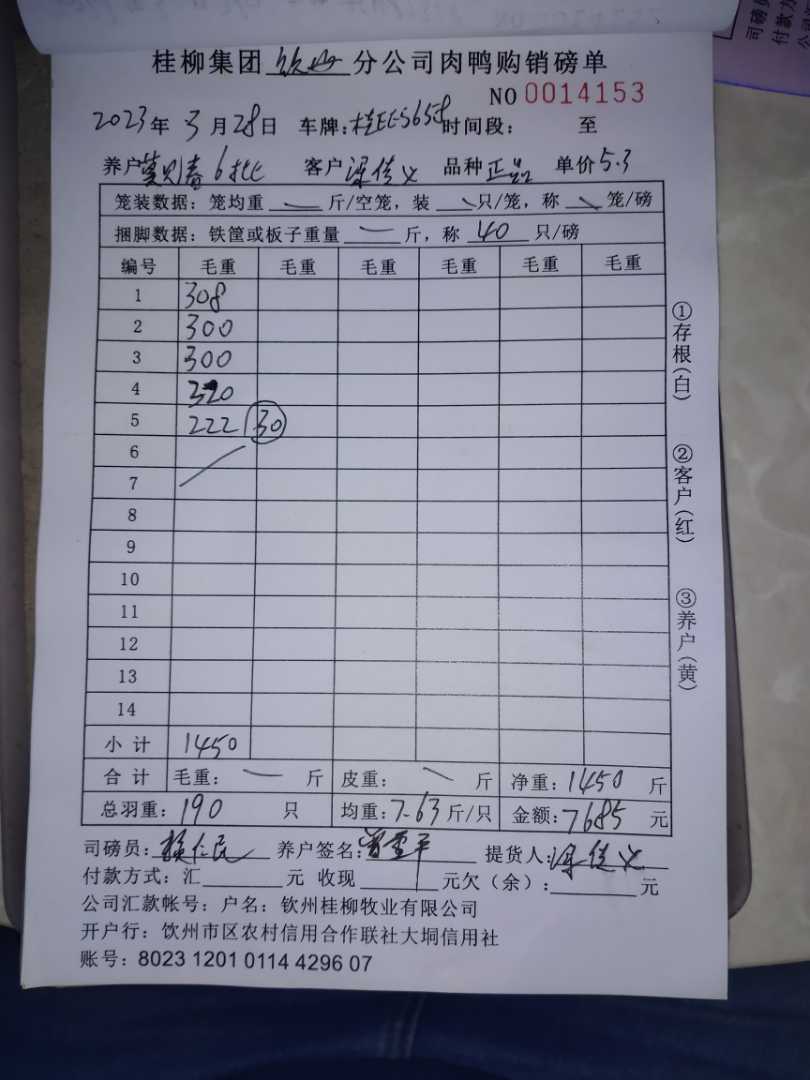 桂柳集团 钦州 分公司肉鸭购销磅单
NO 0014153
2023年 3月28日 车牌：桂EE5658 时间段： 至
养户 6批 客户 梁 义 品种 正品 单价 5.3
笼装数据：笼均重 斤/空笼，装 只/笼，称 笼/磅
捆脚数据：铁筐或板子重量 斤，称 40 只/磅
编号 毛重 毛重 毛重 毛重 毛重 毛重
1 308
2 300
3 300
4 320
5 222 30
6
7
8
9
10
11
12
13
14
小 计 1450
合 计 毛重： 斤 皮重： 斤 净重：1450 斤
总羽重：190 只 均重：7.63 斤/只 金额：7685 元
司磅员： 仁民 养户签名： 提货人：梁 义
付款方式：汇 元 收现 元欠（余）： 元
公司汇款帐号：户名：钦州桂柳牧业有限公司
开户行：饮州市区农村信用合作联社大垌信用社
账号：8023 1201 0114 4296 07
①存根（白）
②客户（红）
③养户（黄）
司磅员
付款方